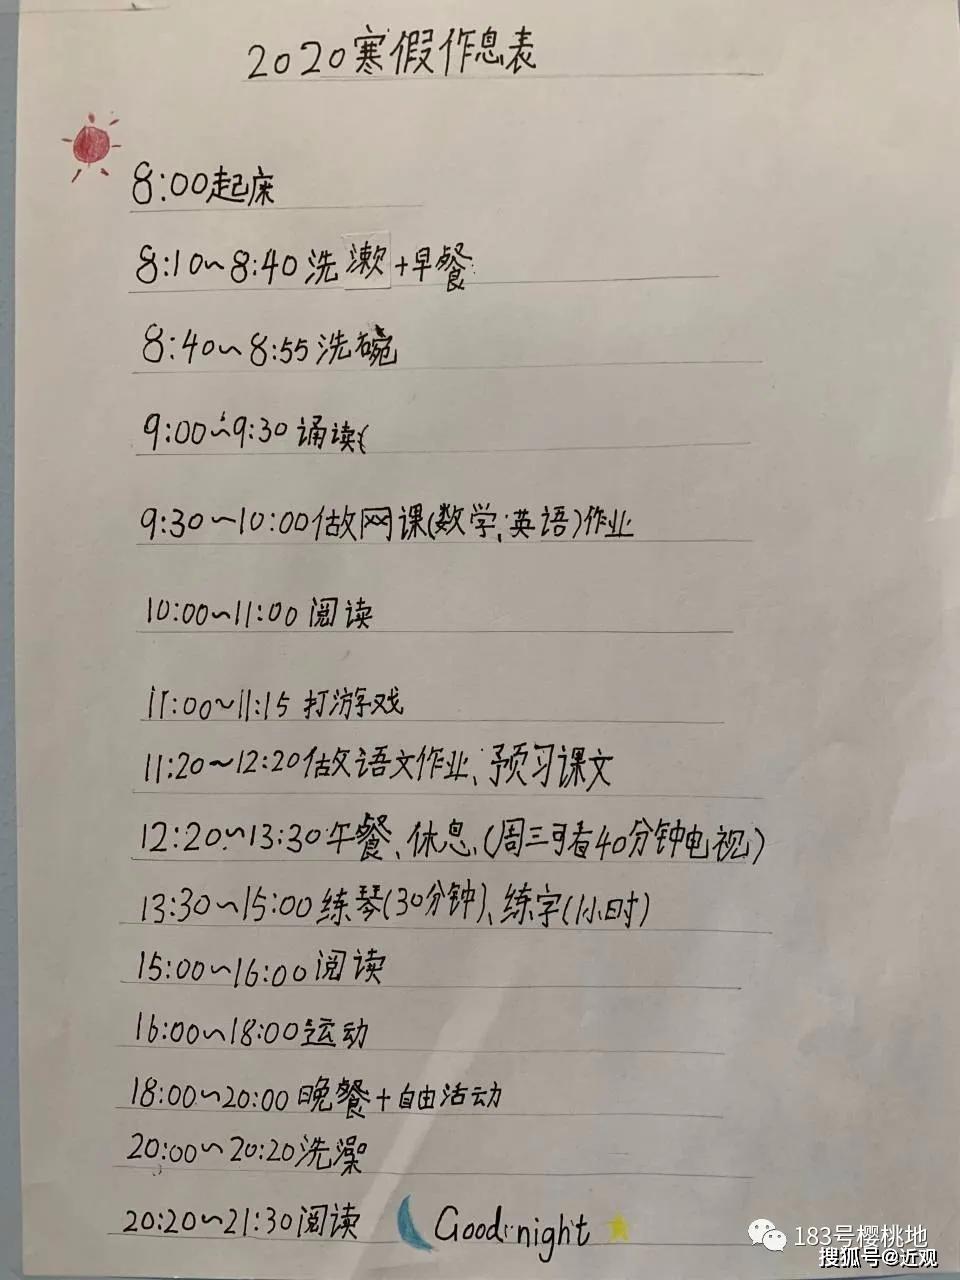 2020寒假作息表
8:00起床
8:10~8:40洗漱+早餐
8:40~8:55洗碗
9:00~9:30诵读
9:30~10:00做网课(数学、英语)作业
10:00~11:00阅读
11:00~11:15打游戏
11:20~12:20做语文作业、预习课文
12:20~13:30午餐、休息、(周三可看40分钟电视)
13:30~15:00练琴(30分钟)、练字(1小时)
15:00~16:00阅读
16:00~18:00运动
18:00~20:00晚餐+自由活动
20:00~20:20洗澡
20:20~21:30阅读 Good night
183号樱桃地
搜狐号@近观